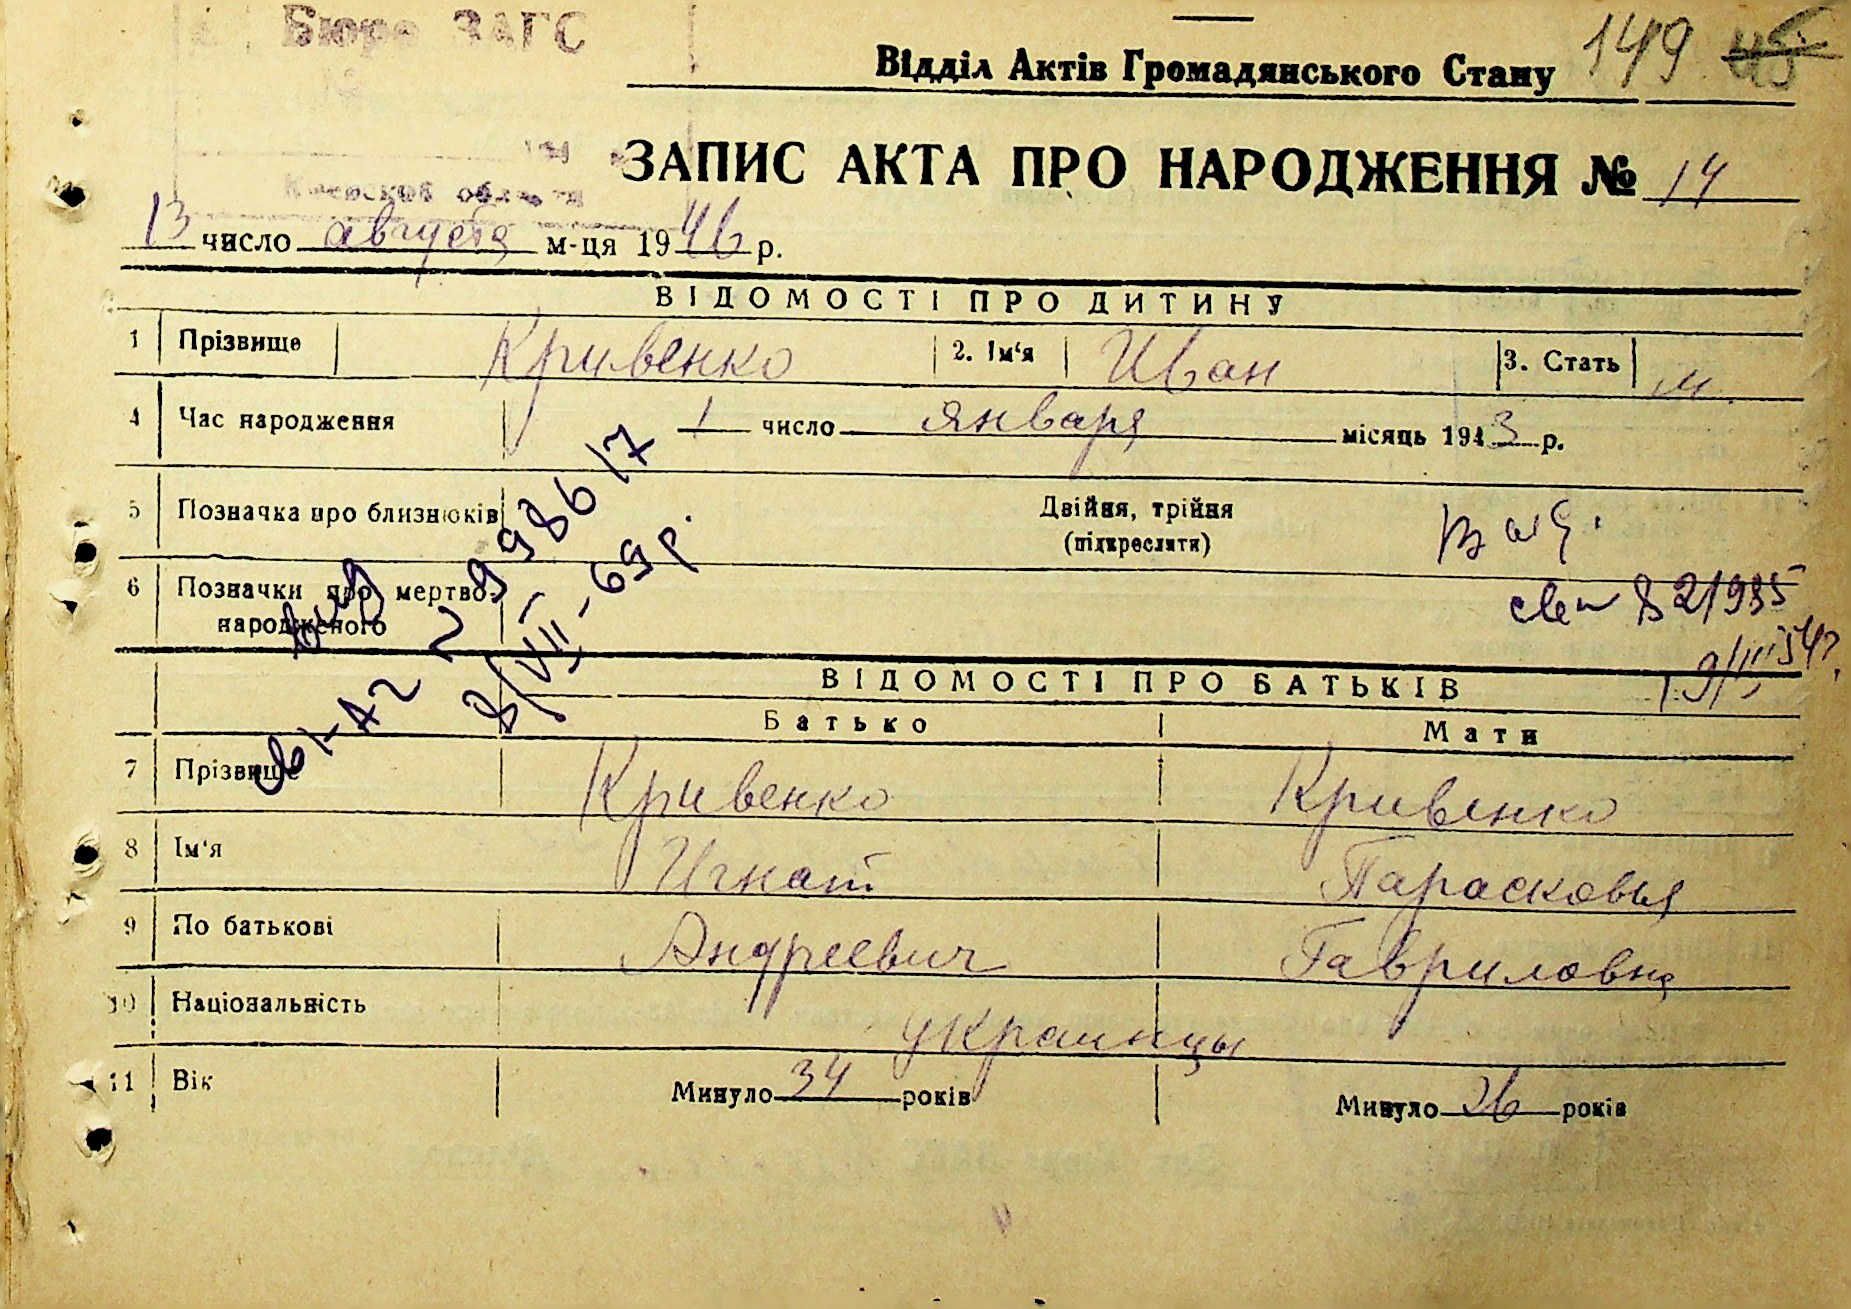 Бюро ЗАГС
149 45
Відділ Актів Громадянського Стану
ЗАПИС АКТА ПРО НАРОДЖЕННЯ № 14
области
13 число августа м-ця 1946 р.
ВІДОМОСТІ ПРО ДИТИНУ
1 Прізвище Кривенко 2. Ім'я Иван 3. Стать м.
4 Час народження 1 число января місяць 1943 р.
5 Позначка про близнюків Двійня, трійня
(підкреслити)
6 Позначки про мертво-
народженого
299867
8/VII-69 р.
ВІДОМОСТІ ПРО БАТЬКІВ
Батько Мати
7 Прізвище Кривенко Кривенко
8 Ім'я Игнат Парасковья
9 По батькові Андреевич Гавриловна
10 Національність украинцы
11 Вік Минуло 34 років Минуло 26 років